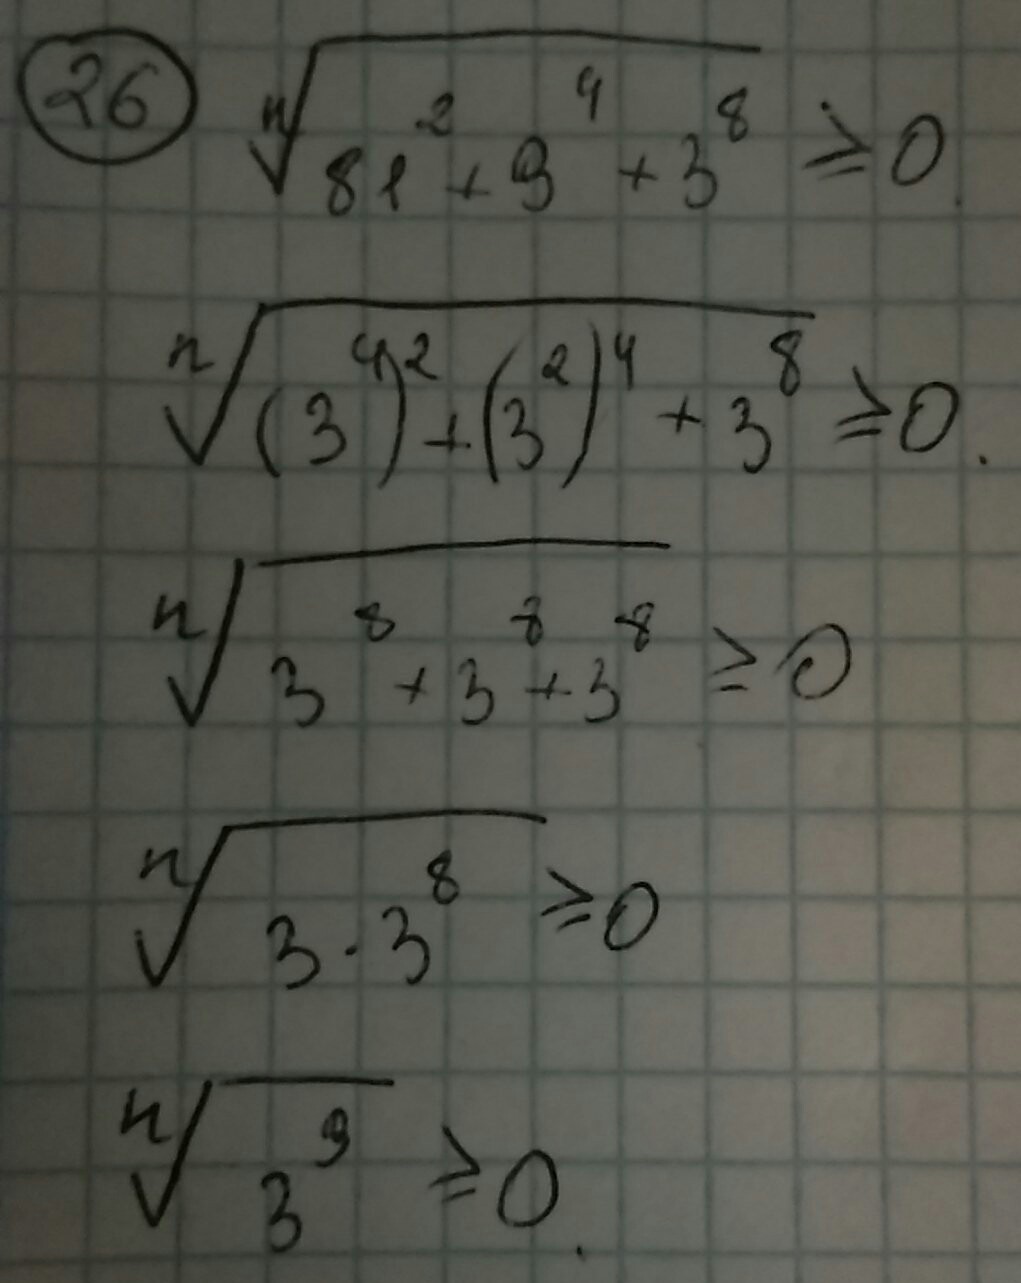 26 ⁿ√(81² + 9⁴ + 3⁸) ≥ 0.
ⁿ√((3⁴)² + (3²)⁴ + 3⁸) ≥ 0.
ⁿ√(3⁸ + 3⁸ + 3⁸) ≥ 0
ⁿ√(3 · 3⁸) ≥ 0
ⁿ√(3⁹) ≥ 0.